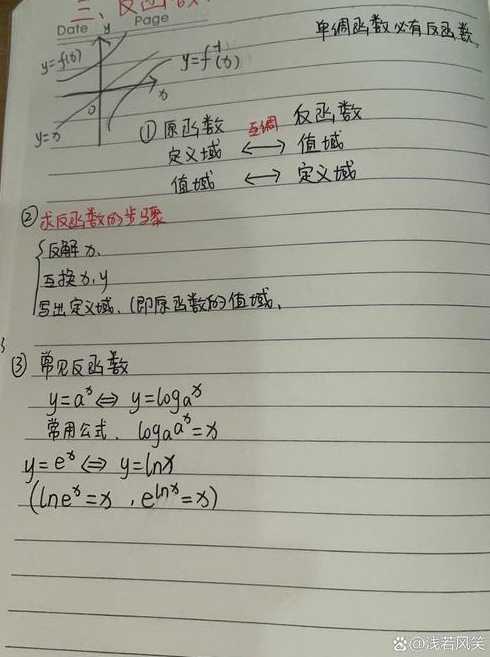 三、反函数
Date y Page
单调函数必有反函数.
y=f(x)
y=f⁻¹(x)
x
0
y=x
① 原函数 互调 反函数
定义域 ⟷ 值域
值域 ⟷ 定义域
② 求反函数的步骤
反解x.
互换x,y
写出定义域.(即原函数的值域.
③ 常见反函数
y=aˣ⇔y=logₐx
常用公式. logₐaˣ=x
y=eˣ⇔y=lnx
(lneˣ=x , eˡⁿˣ=x)
@浅若风笑